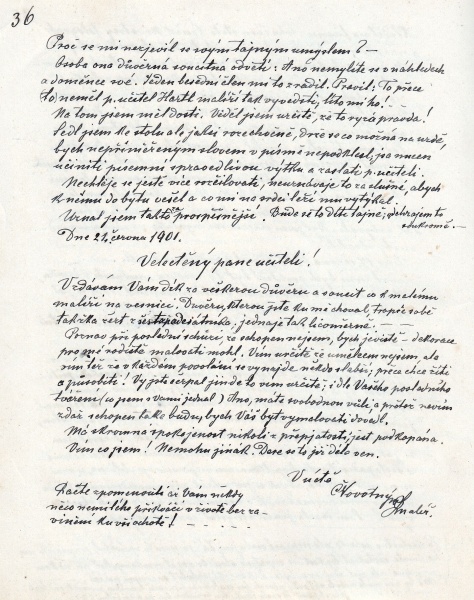 36
Proč se mi nezjevil se svým tajným úmyslem? –
Osoba ona důvěrná soucitná odvětí: Ano nemýlíte se v náhledech
a domněnce své. Jeden besední člen mi to zradil. Pravil: To přece
neměl p. učitel Hartl malíři tak vyvésti, líto mi ho! –
Na tom jsem měl dosti. Věděl jsem určitě, že to ryzá pravda!
Sedl jsem ke stolu ale jaksi rozechvěně, drže se co možná na uzdě,
bych nepřiměřeným slovem v písmě nepodklesl, jsa nucen
učiniti písemní spravedlivou výtku a zaslati p. učiteli.
Nechtěje se ještě více rozčilovati, neuznávaje to za slušné, abych
k němu do bytu vešel a co mi na srdci leží mu vytýkal.
Uznal jsem takto za prospěšnější. Bude se to díti tajně, odehrajem to
soukromě. –
Dne 21. června 1901.
Velectěný pane učiteli!
Vzdávám Vám dík za veškerou důvěru a soucit co k malému
malíři na vesnici. Důvěru, kterou jste ku mi choval, tropíc sobě
takřka žert z jednaje tak licoměrně. –
Pravil při poslední schůzi, že schopen nejsem, bych jeviště – dekorace
pro mé rodiště malovati mohl. Vím určitě že umělcem nejsem, ale
než v každém povolání se vynajde někdo slabší, přece chce žíti
a působiti! Vy jste serpal jinde to vím určitě, i dle Vašeho posledního
tvoření (co jsem s vámi jednal) Ano, máte svobodnou vůli, a příště nevím
zdaž schopen také budu, bych Váš byt vymalovati dovedl.
Má skromná spokojenost nikoli z přepjatosti, jest podkopána.
Vím co jsem! Nemohu jinak. Dere se to již dělo ven.
V úctě
Novotný
malíř.
Račte vzpomenouti až Vám někdy
něco nemilého překváčí v životě bez za-
vinění ku vší ochotě! – – – –